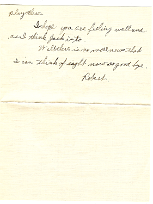 I hope you are feeling well and
as I think back into
is no more news that
I can think of right now so good bye.
Robert